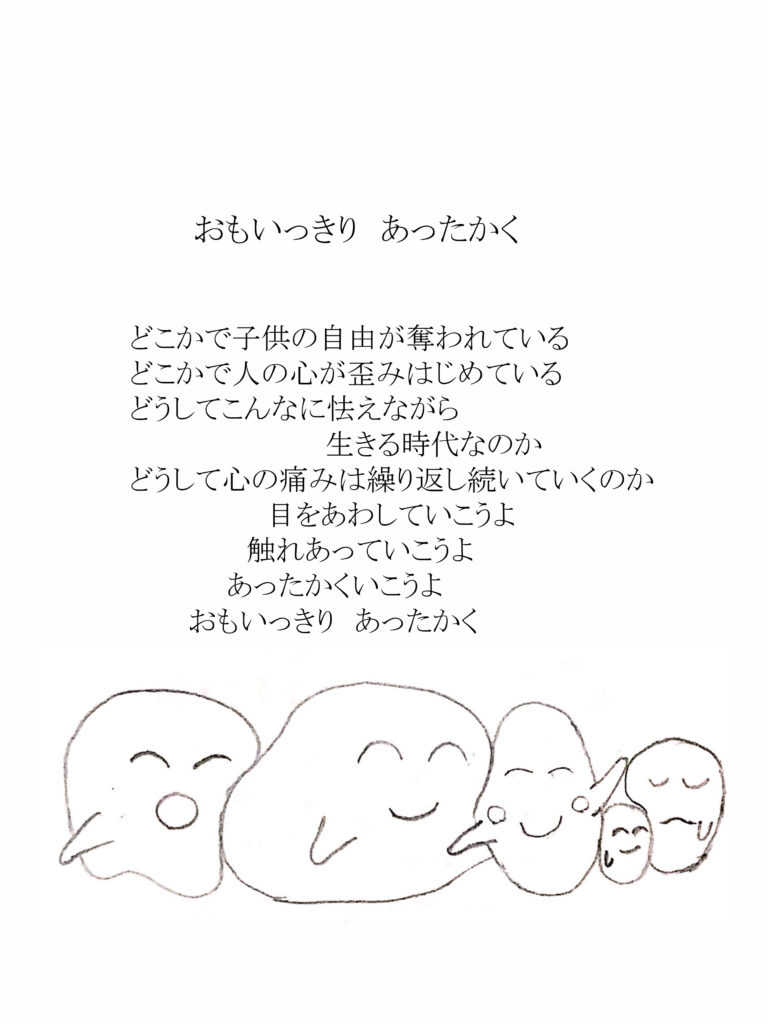 おもいっきり　あったかく
どこかで子供の自由が奪われている
どこかで人の心が歪みはじめている
どうしてこんなに怯えながら
生きる時代なのか
どうして心の痛みは繰り返し続いていくのか
目をあわしていこうよ
触れあっていこうよ
あったかくいこうよ
おもいっきり　あったかく